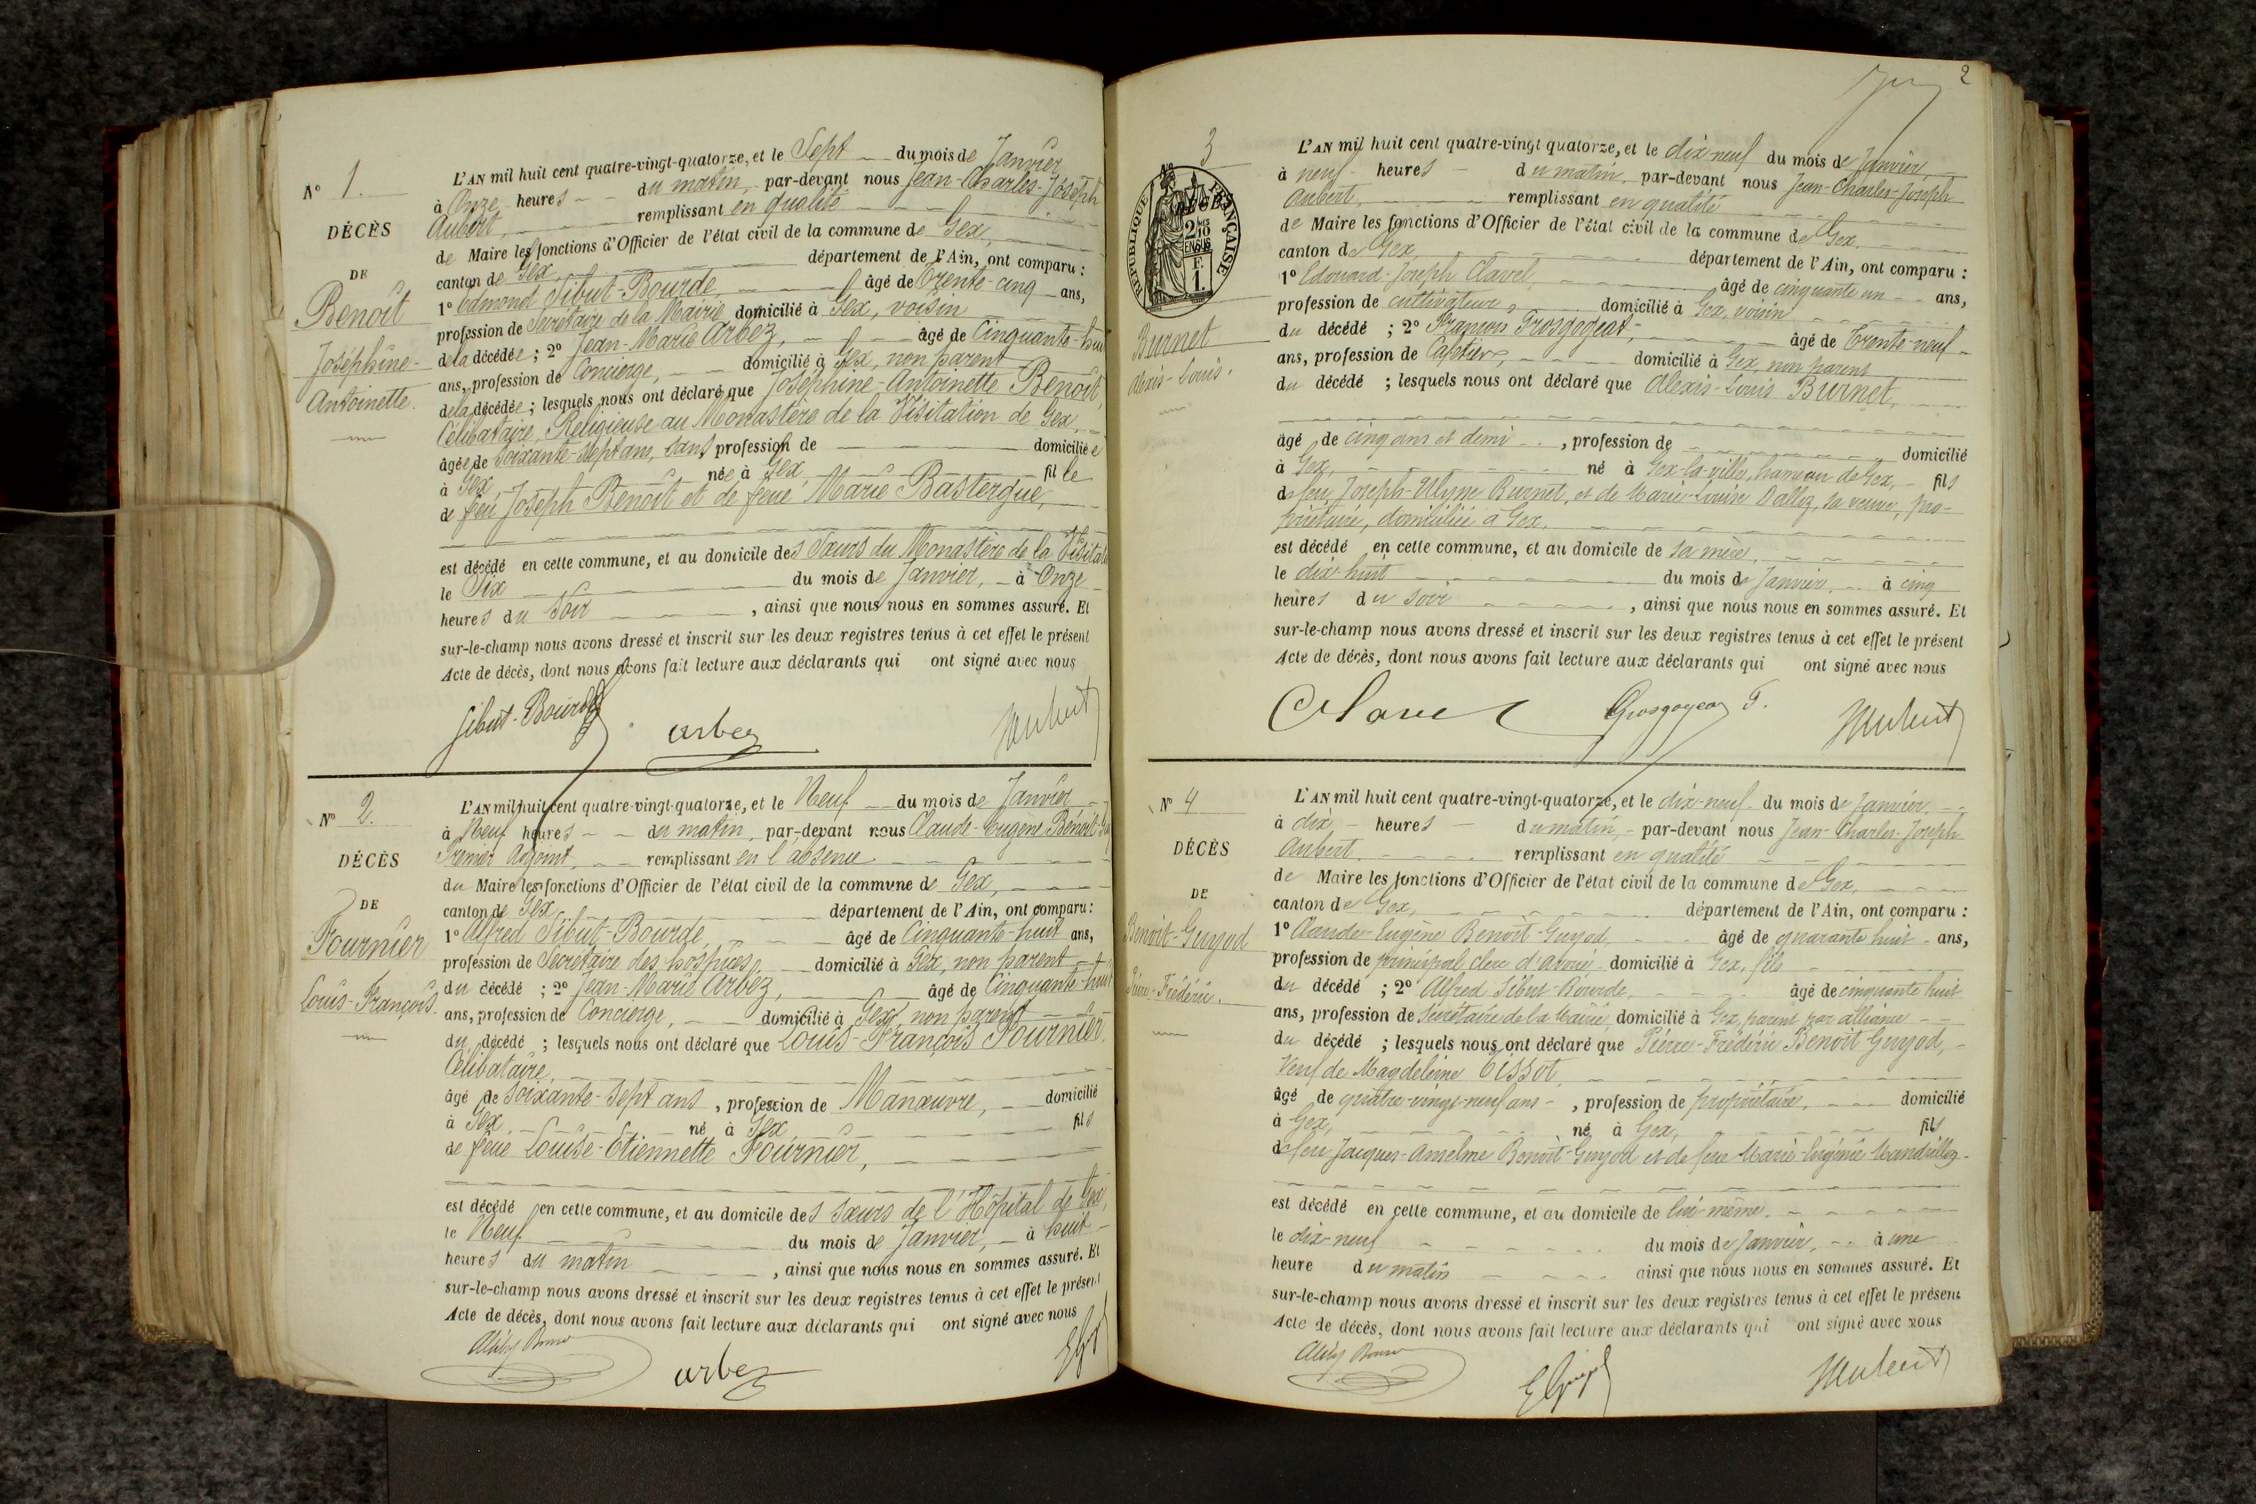 N° 1.
DÉCÈS
DE
Benoît
Joséphine-
Antoinette.
L'AN mil huit cent quatre-vingt-quatorze, et le Sept du mois de Janvier
à Onze heures du matin, par-devant nous Jean-Charles-Joseph
Aubert, remplissant en qualité
de Maire les fonctions d'Officier de l'état civil de la commune de Gex,
canton de Gex, département de l'Ain, ont comparu :
1° Edmond Sibut-Bourde, âgé de Trente-cinq ans,
profession de Secrétaire de la Mairie domicilié à Gex, voisin
de la décédée ; 2° Jean-Marie Arbez, âgé de Cinquante-huit
ans, profession de Concierge, domicilié à Gex, non parent
de la décédée ; lesquels nous ont déclaré que Joséphine-Antoinette Benoît,
Célibataire, Religieuse au Monastère de la Visitation de Gex,
âgée de Soixante-sept ans, sans profession de domiciliée
à Gex née à Gex fille
de feu Joseph Benoît et de feue Marie Bastergue,
est décédé en cette commune, et au domicile des Sœurs du Monastère de la Visitat
le Six du mois de Janvier, à Onze
heures du Soir, ainsi que nous nous en sommes assuré. Et
sur-le-champ nous avons dressé et inscrit sur les deux registres tenus à cet effet le présent
Acte de décès, dont nous avons fait lecture aux déclarants qui ont signé avec nous
Sibut-Bourde arbez JAubert
N° 2.
DÉCÈS
DE
Fournier
Louis-François.
L'AN mil huit cent quatre-vingt-quatorze, et le Neuf du mois de Janvier
à Neuf heures du matin, par-devant nous Claude-Eugène Benoît-
Premier Adjoint, remplissant en l'absence
du Maire les fonctions d'Officier de l'état civil de la commune de Gex,
canton de Gex, département de l'Ain, ont comparu :
1° Alfred Sibut-Bourde, âgé de Cinquante-huit ans,
profession de Secrétaire des hospices, domicilié à Gex, non parent
du décédé ; 2° Jean-Marie Arbez, âgé de Cinquante-huit
ans, profession de Concierge, domicilié à Gex, non parent
du décédé ; lesquels nous ont déclaré que Louis-François Fournier,
Célibataire,
âgé de Soixante-sept ans, profession de Manœuvre, domicilié
à Gex né à Gex fils
de feue Louise-Etiennette Fournier,
est décédé en cette commune, et au domicile des sœurs de l'Hôpital de Gex,
le Neuf du mois de Janvier, à huit
heures du matin, ainsi que nous nous en sommes assuré. Et
sur-le-champ nous avons dressé et inscrit sur les deux registres tenus à cet effet le présent
Acte de décès, dont nous avons fait lecture aux déclarants qui ont signé avec nous
arbez
2
N° 3
RÉPUBLIQUE FRANÇAISE
2 10
EN SUS
F.
1.
Burnet
Alexis-Louis.
L'AN mil huit cent quatre-vingt quatorze, et le dix-neuf du mois de Janvier,
à neuf heures du matin, par-devant nous Jean-Charles-Joseph
Aubert, remplissant en qualité
de Maire les fonctions d'Officier de l'état civil de la commune de Gex,
canton de Gex, département de l'Ain, ont comparu :
1° Edouard-Joseph Clavel, âgé de cinquante un ans,
profession de cultivateur, domicilié à Gex, voisin
du décédé ; 2° François Grosgogeat, âgé de Trente-neuf
ans, profession de Cafetier, domicilié à Gex, non parent
du décédé ; lesquels nous ont déclaré que Alexis-Louis Burnet,
âgé de cinq ans et demi, profession de domicilié
à Gex, né à Gex-la-ville, hameau de Gex, fils
de feu, Joseph-Ulysse Burnet, et de Marie-Louise Dalloz, sa veuve, pro-
priétaire, domiciliée à Gex,
est décédé en cette commune, et au domicile de sa mère,
le dix-huit du mois de Janvier, à cinq
heures du soir, ainsi que nous nous en sommes assuré. Et
sur-le-champ nous avons dressé et inscrit sur les deux registres tenus à cet effet le présent
Acte de décès, dont nous avons fait lecture aux déclarants qui ont signé avec nous
Clavel Grosgogeat F. JAubert
N° 4
DÉCÈS
DE
Benoit-Guyod
Pierre-Frédéric.
L'AN mil huit cent quatre-vingt-quatorze, et le dix-neuf du mois de Janvier,
à dix heures du matin, par-devant nous Jean-Charles-Joseph
Aubert, remplissant en qualité
de Maire les fonctions d'Officier de l'état civil de la commune de Gex,
canton de Gex, département de l'Ain, ont comparu :
1° Claude-Eugène Benoit-Guyod, âgé de quarante huit ans,
profession de principal clerc d'avoué, domicilié à Gex, fils
du décédé ; 2° Alfred Sibut-Bourde, âgé de cinquante huit
ans, profession de Secrétaire de la Mairie, domicilié à Gex, parent par alliance
du décédé ; lesquels nous ont déclaré que Pierre-Frédéric Benoit Guyod,
Veuf de Magdeleine Tissot,
âgé de quatre-vingt-neuf ans, profession de propriétaire, domicilié
à Gex, né à Gex, fils
de feu Jacques-Anselme Benoit-Guyod et de feue Marie-Eugénie Mandrillon
est décédé en cette commune, et au domicile de lui-même.
le dix-neuf du mois de Janvier, à une
heure du matin ainsi que nous nous en sommes assuré. Et
sur-le-champ nous avons dressé et inscrit sur les deux registres tenus à cet effet le présent
Acte de décès, dont nous avons fait lecture aux déclarants qui ont signé avec nous
JAubert